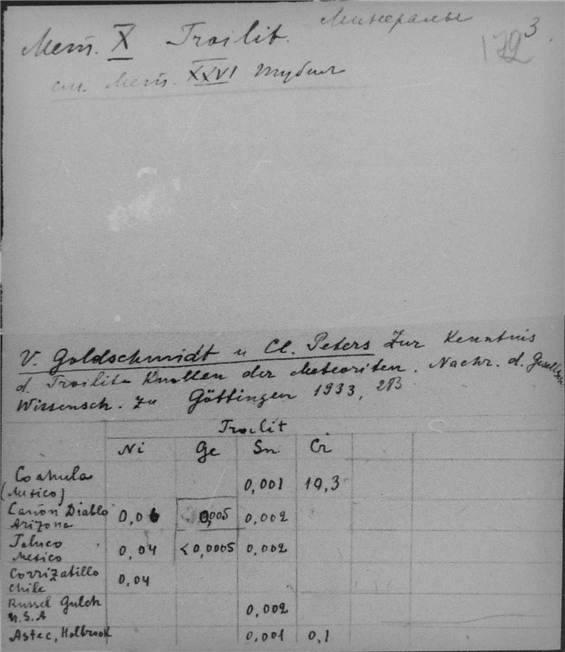 Минералы
172 3.
Мет. X Troilit.
см. Мет. XXVI
V. Goldschmidt u Cl. Peters Zur Kenntnis
d. Troilit Knollen der Meteoriten. Nachr. d. Gesellsch
Wissensch. zu Göttingen 1933, 283
Troilit
Ni Ge Sn Cr
Coahula 0,001 19,3
(Mexico)
Cañon Diablo 0,06 0,005 0,002
Arizona
Toluco 0,04 <0,0005 0,002
Mexico
Corrizatillo 0,04
Chile
Russel Gulch 0,002
U.S.A
Astec, Holbrook 0,001 0,1